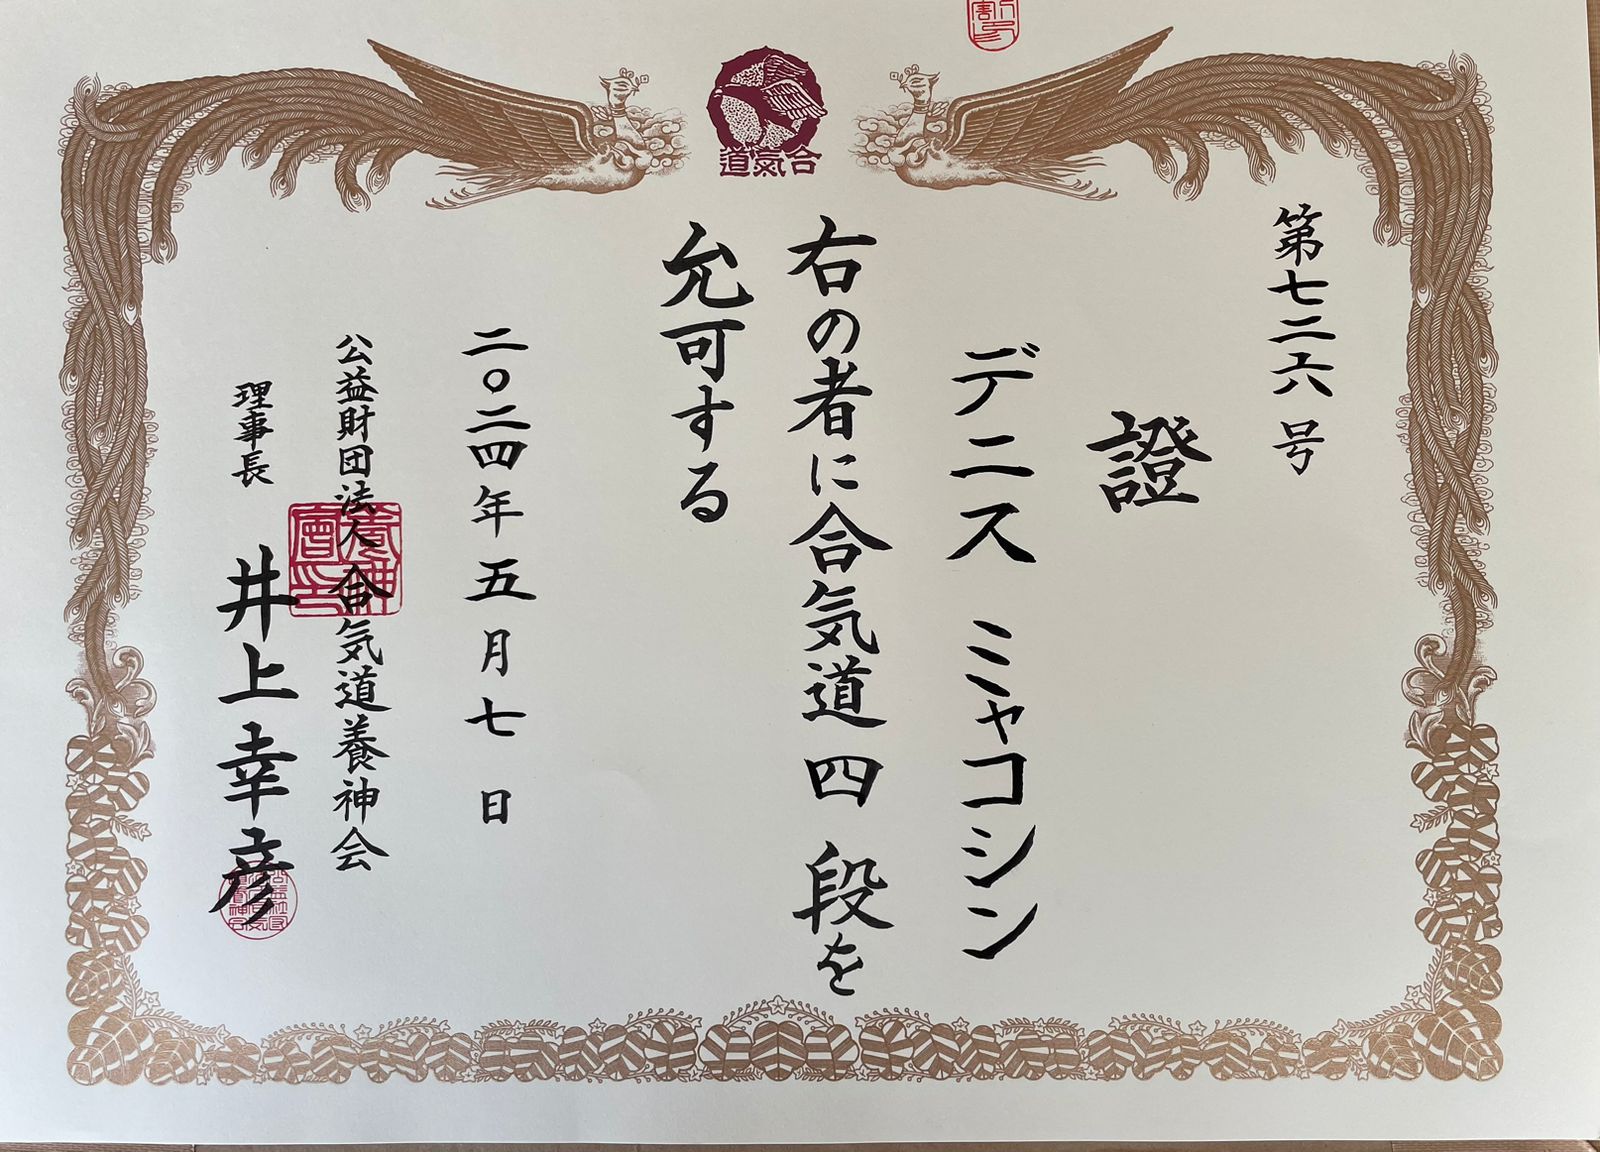 合氣道
第七二六号
證
デニス ミャコシン
右の者に合気道四段を
允可する
二〇二四年五月七日
公益財団法人合気道養神会
理事長 井上幸彦